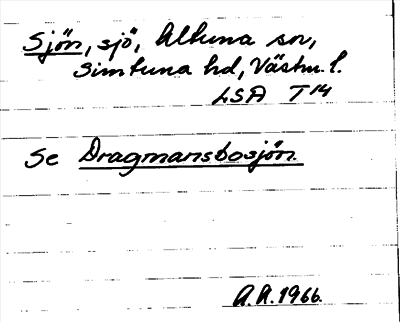 Sjön, sjö, Altuna sn,
Simtuna hd, Västm. l.
LSA T14
Se Dragmansbosjön
A.A. 1966.